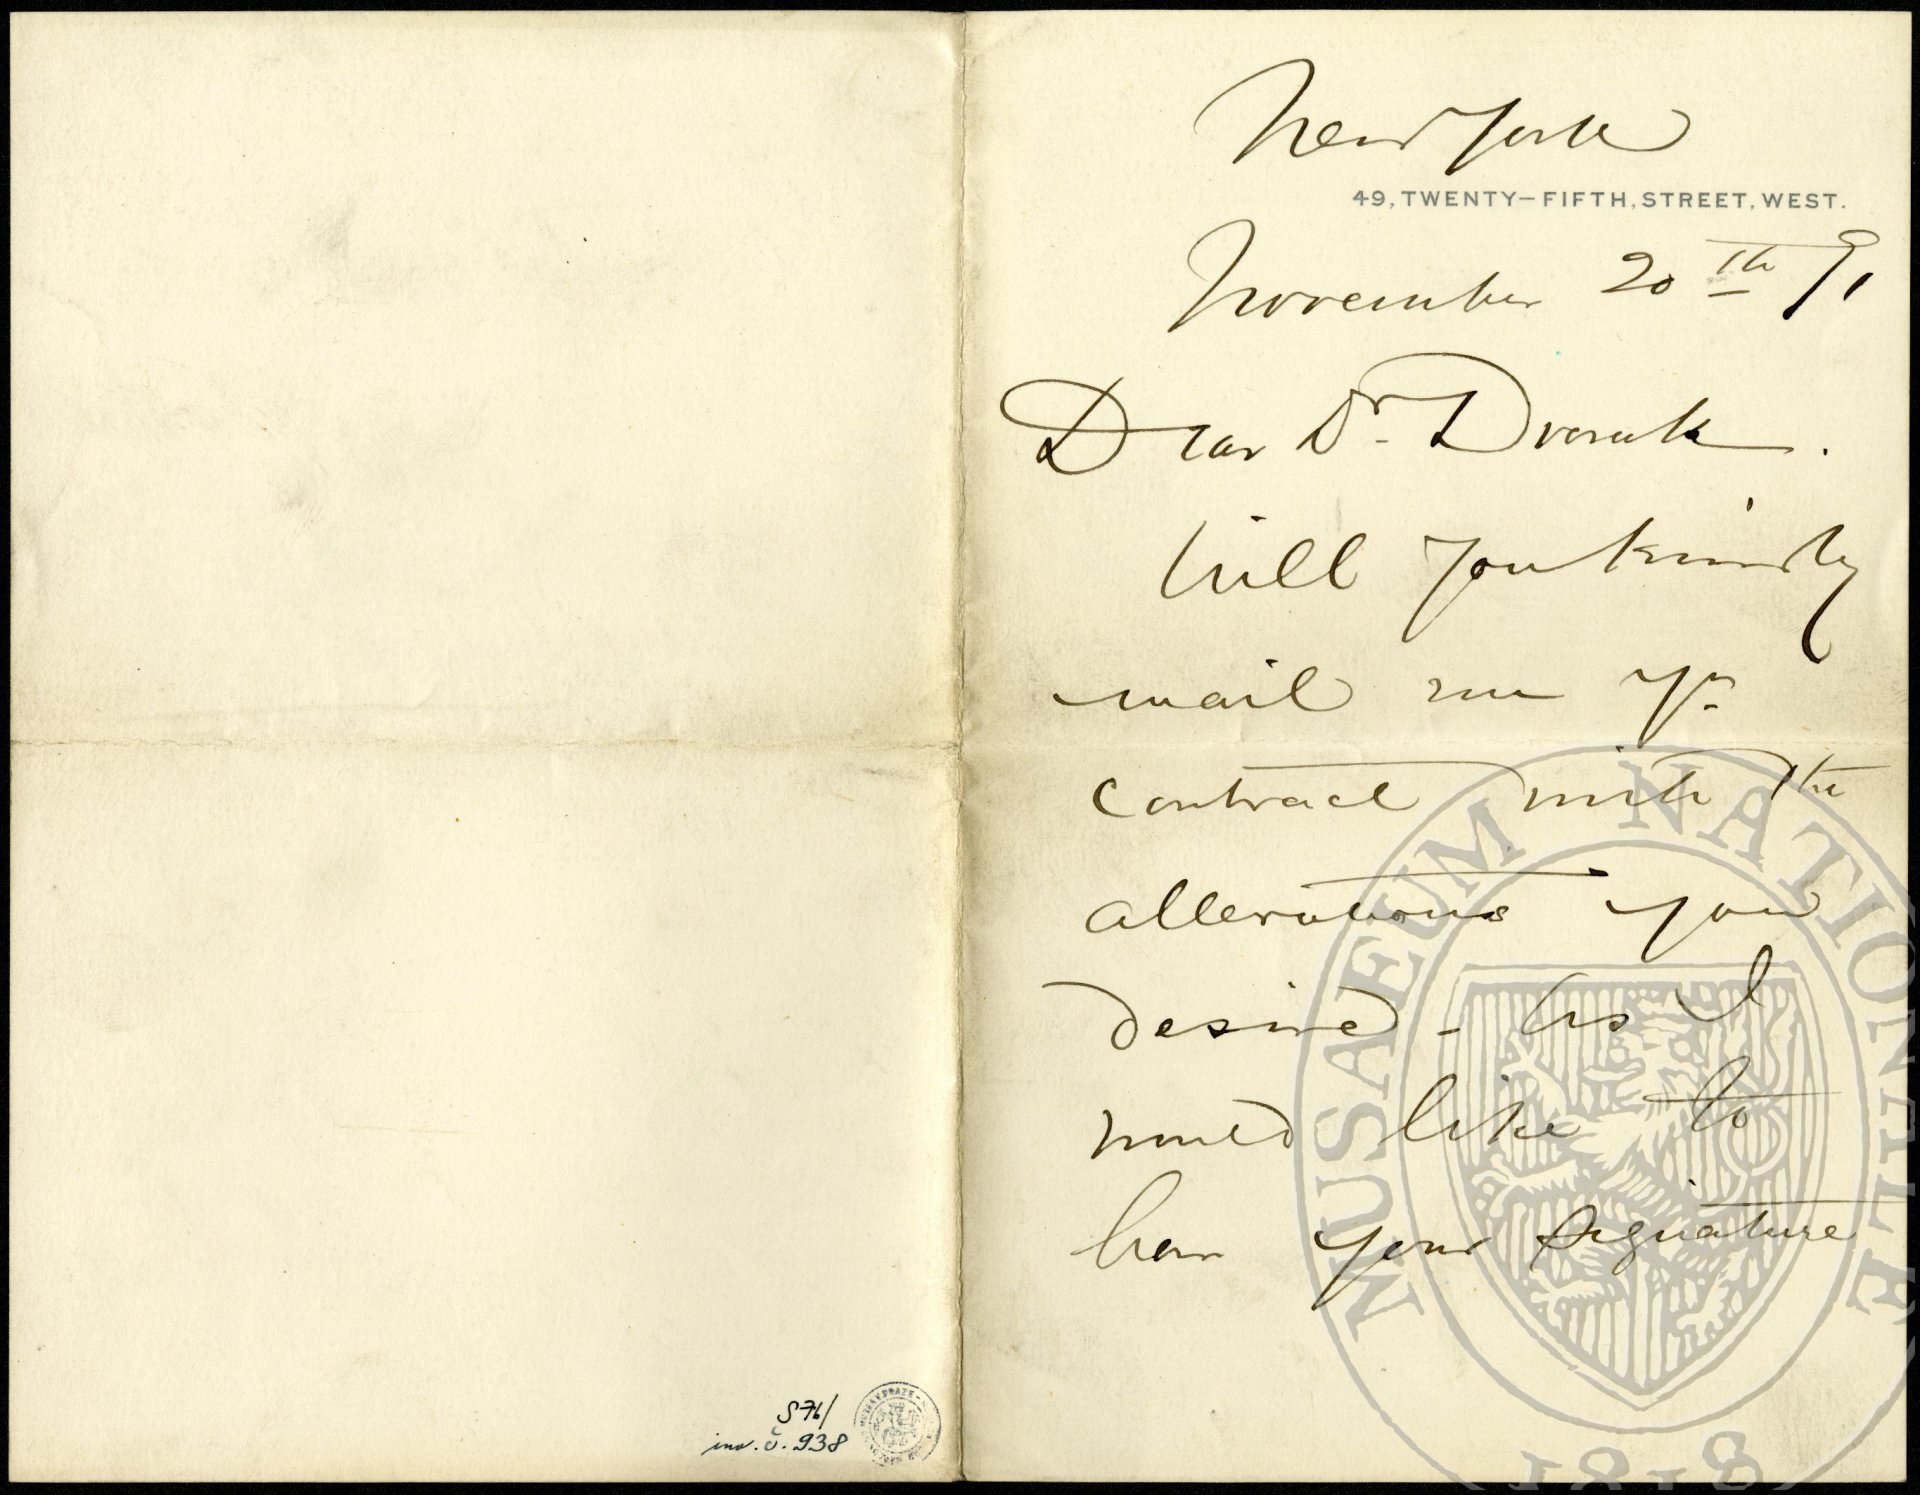 New York
49, TWENTY-FIFTH, STREET, WEST.
November 20th 91
Dear Dr. Dvorak.
Will you kindly
mail me yr
contract with the
alterations you
desired - as I
would like to
have your signature
S 76/
inv. č. 938
MUSAEUM NATIONALE
1818